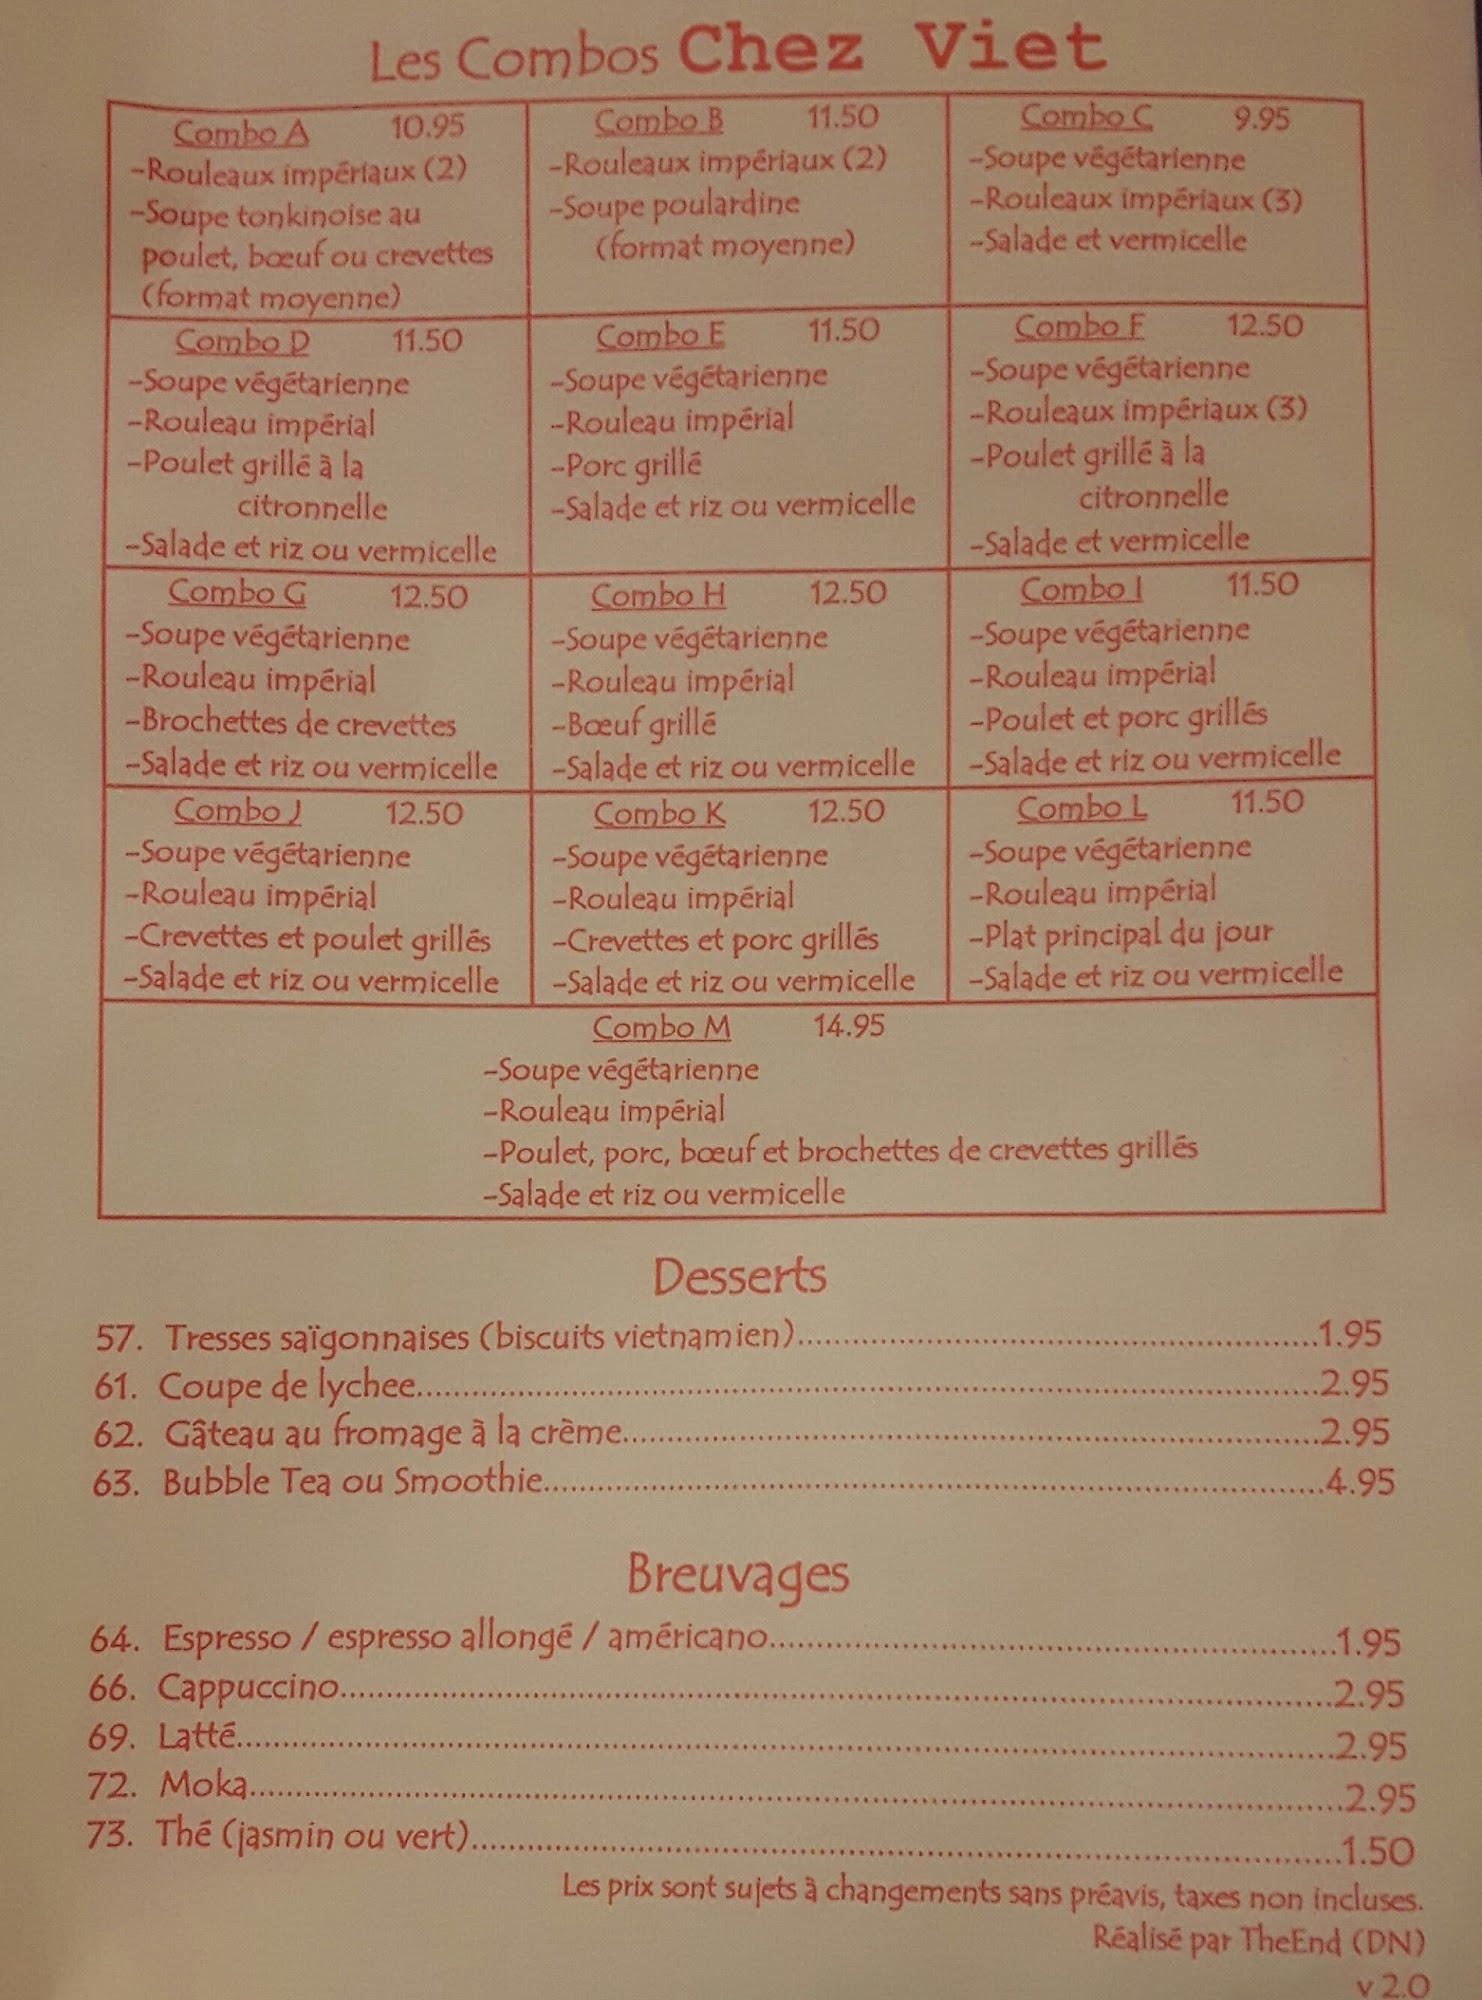 Les Combos Chez Viet
Combo A 10.95
-Rouleaux impériaux (2)
-Soupe tonkinoise au
poulet, bœuf ou crevettes
(format moyenne)
Combo B 11.50
-Rouleaux impériaux (2)
-Soupe poulardine
(format moyenne)
Combo C 9.95
-Soupe végétarienne
-Rouleaux impériaux (3)
-Salade et vermicelle
Combo D 11.50
-Soupe végétarienne
-Rouleau impérial
-Poulet grillé à la
citronnelle
-Salade et riz ou vermicelle
Combo E 11.50
-Soupe végétarienne
-Rouleau impérial
-Porc grillé
-Salade et riz ou vermicelle
Combo F 12.50
-Soupe végétarienne
-Rouleaux impériaux (3)
-Poulet grillé à la
citronnelle
-Salade et vermicelle
Combo G 12.50
-Soupe végétarienne
-Rouleau impérial
-Brochettes de crevettes
-Salade et riz ou vermicelle
Combo H 12.50
-Soupe végétarienne
-Rouleau impérial
-Bœuf grillé
-Salade et riz ou vermicelle
Combo I 11.50
-Soupe végétarienne
-Rouleau impérial
-Poulet et porc grillés
-Salade et riz ou vermicelle
Combo J 12.50
-Soupe végétarienne
-Rouleau impérial
-Crevettes et poulet grillés
-Salade et riz ou vermicelle
Combo K 12.50
-Soupe végétarienne
-Rouleau impérial
-Crevettes et porc grillés
-Salade et riz ou vermicelle
Combo L 11.50
-Soupe végétarienne
-Rouleau impérial
-Plat principal du jour
-Salade et riz ou vermicelle
Combo M 14.95
-Soupe végétarienne
-Rouleau impérial
-Poulet, porc, bœuf et brochettes de crevettes grillés
-Salade et riz ou vermicelle
Desserts
57. Tresses saïgonnaises (biscuits vietnamien)..........1.95
61. Coupe de lychee..........2.95
62. Gâteau au fromage à la crème..........2.95
63. Bubble Tea ou Smoothie..........4.95
Breuvages
64. Espresso / espresso allongé / américano..........1.95
66. Cappuccino..........2.95
69. Latté..........2.95
72. Moka..........2.95
73. Thé (jasmin ou vert)..........1.50
Les prix sont sujets à changements sans préavis, taxes non incluses.
Réalisé par TheEnd (DN)
v 2.0